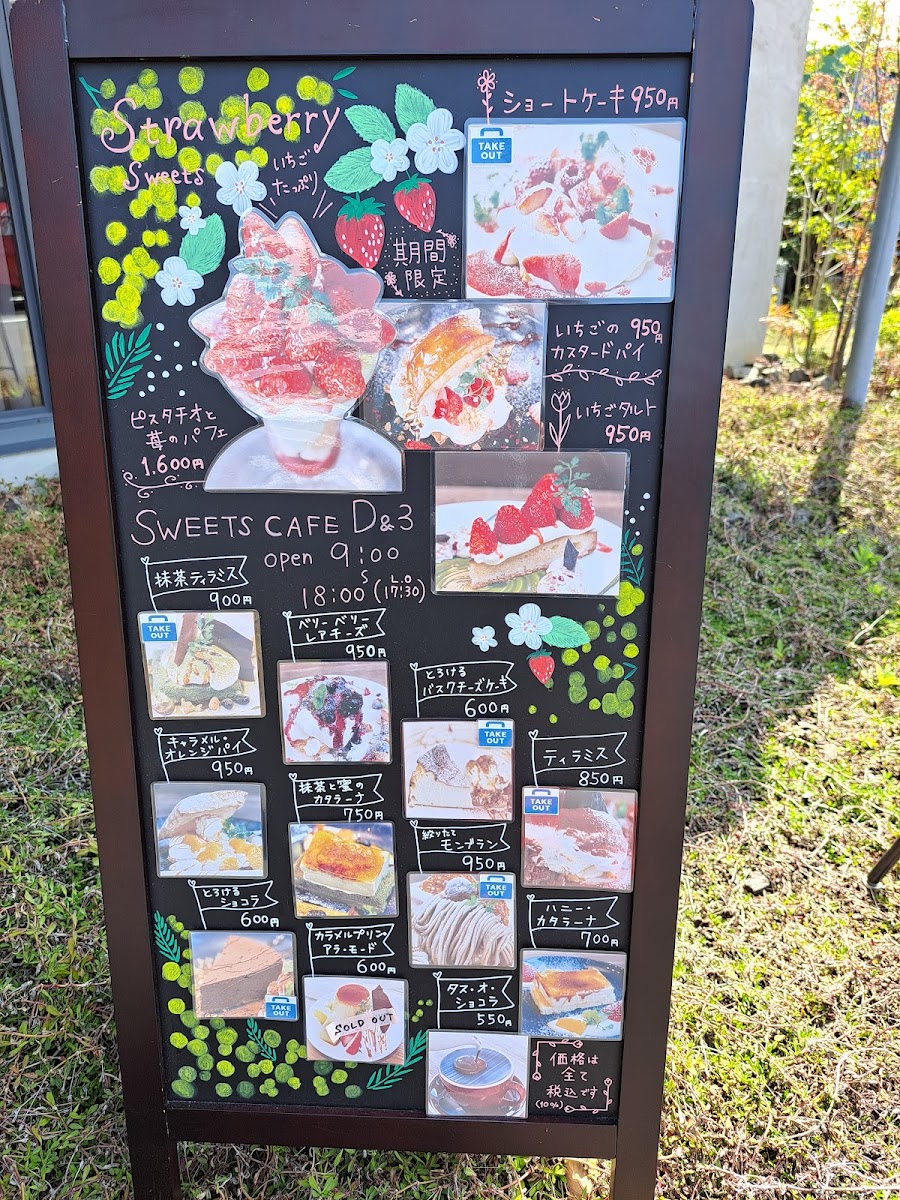 Strawberry
Sweets
いちご
たっぷり
期間
限定
ショートケーキ 950円
TAKE
OUT
いちごの 950円
カスタードパイ
いちごタルト
950円
ピスタチオと
苺のパフェ
1,600円
SWEETS CAFE D&3
open 9:00
S
18:00 (L.O 17:30)
抹茶ティラミス
900円
TAKE
OUT
ベリーベリー
レアチーズ
950円
とろける
バスクチーズケーキ
600円
TAKE
OUT
キャラメル・
オレンジパイ
950円
抹茶と蜜の
カタラーナ
750円
ティラミス
850円
TAKE
OUT
絞りたて
モンブラン
950円
TAKE
OUT
とろける
ショコラ
600円
TAKE
OUT
カラメルプリン・
ア・ラ・モード
600円
SOLD OUT
ハニー・
カタラーナ
700円
タス・オ・
ショコラ
550円
価格は
全て
税込です
(10%)